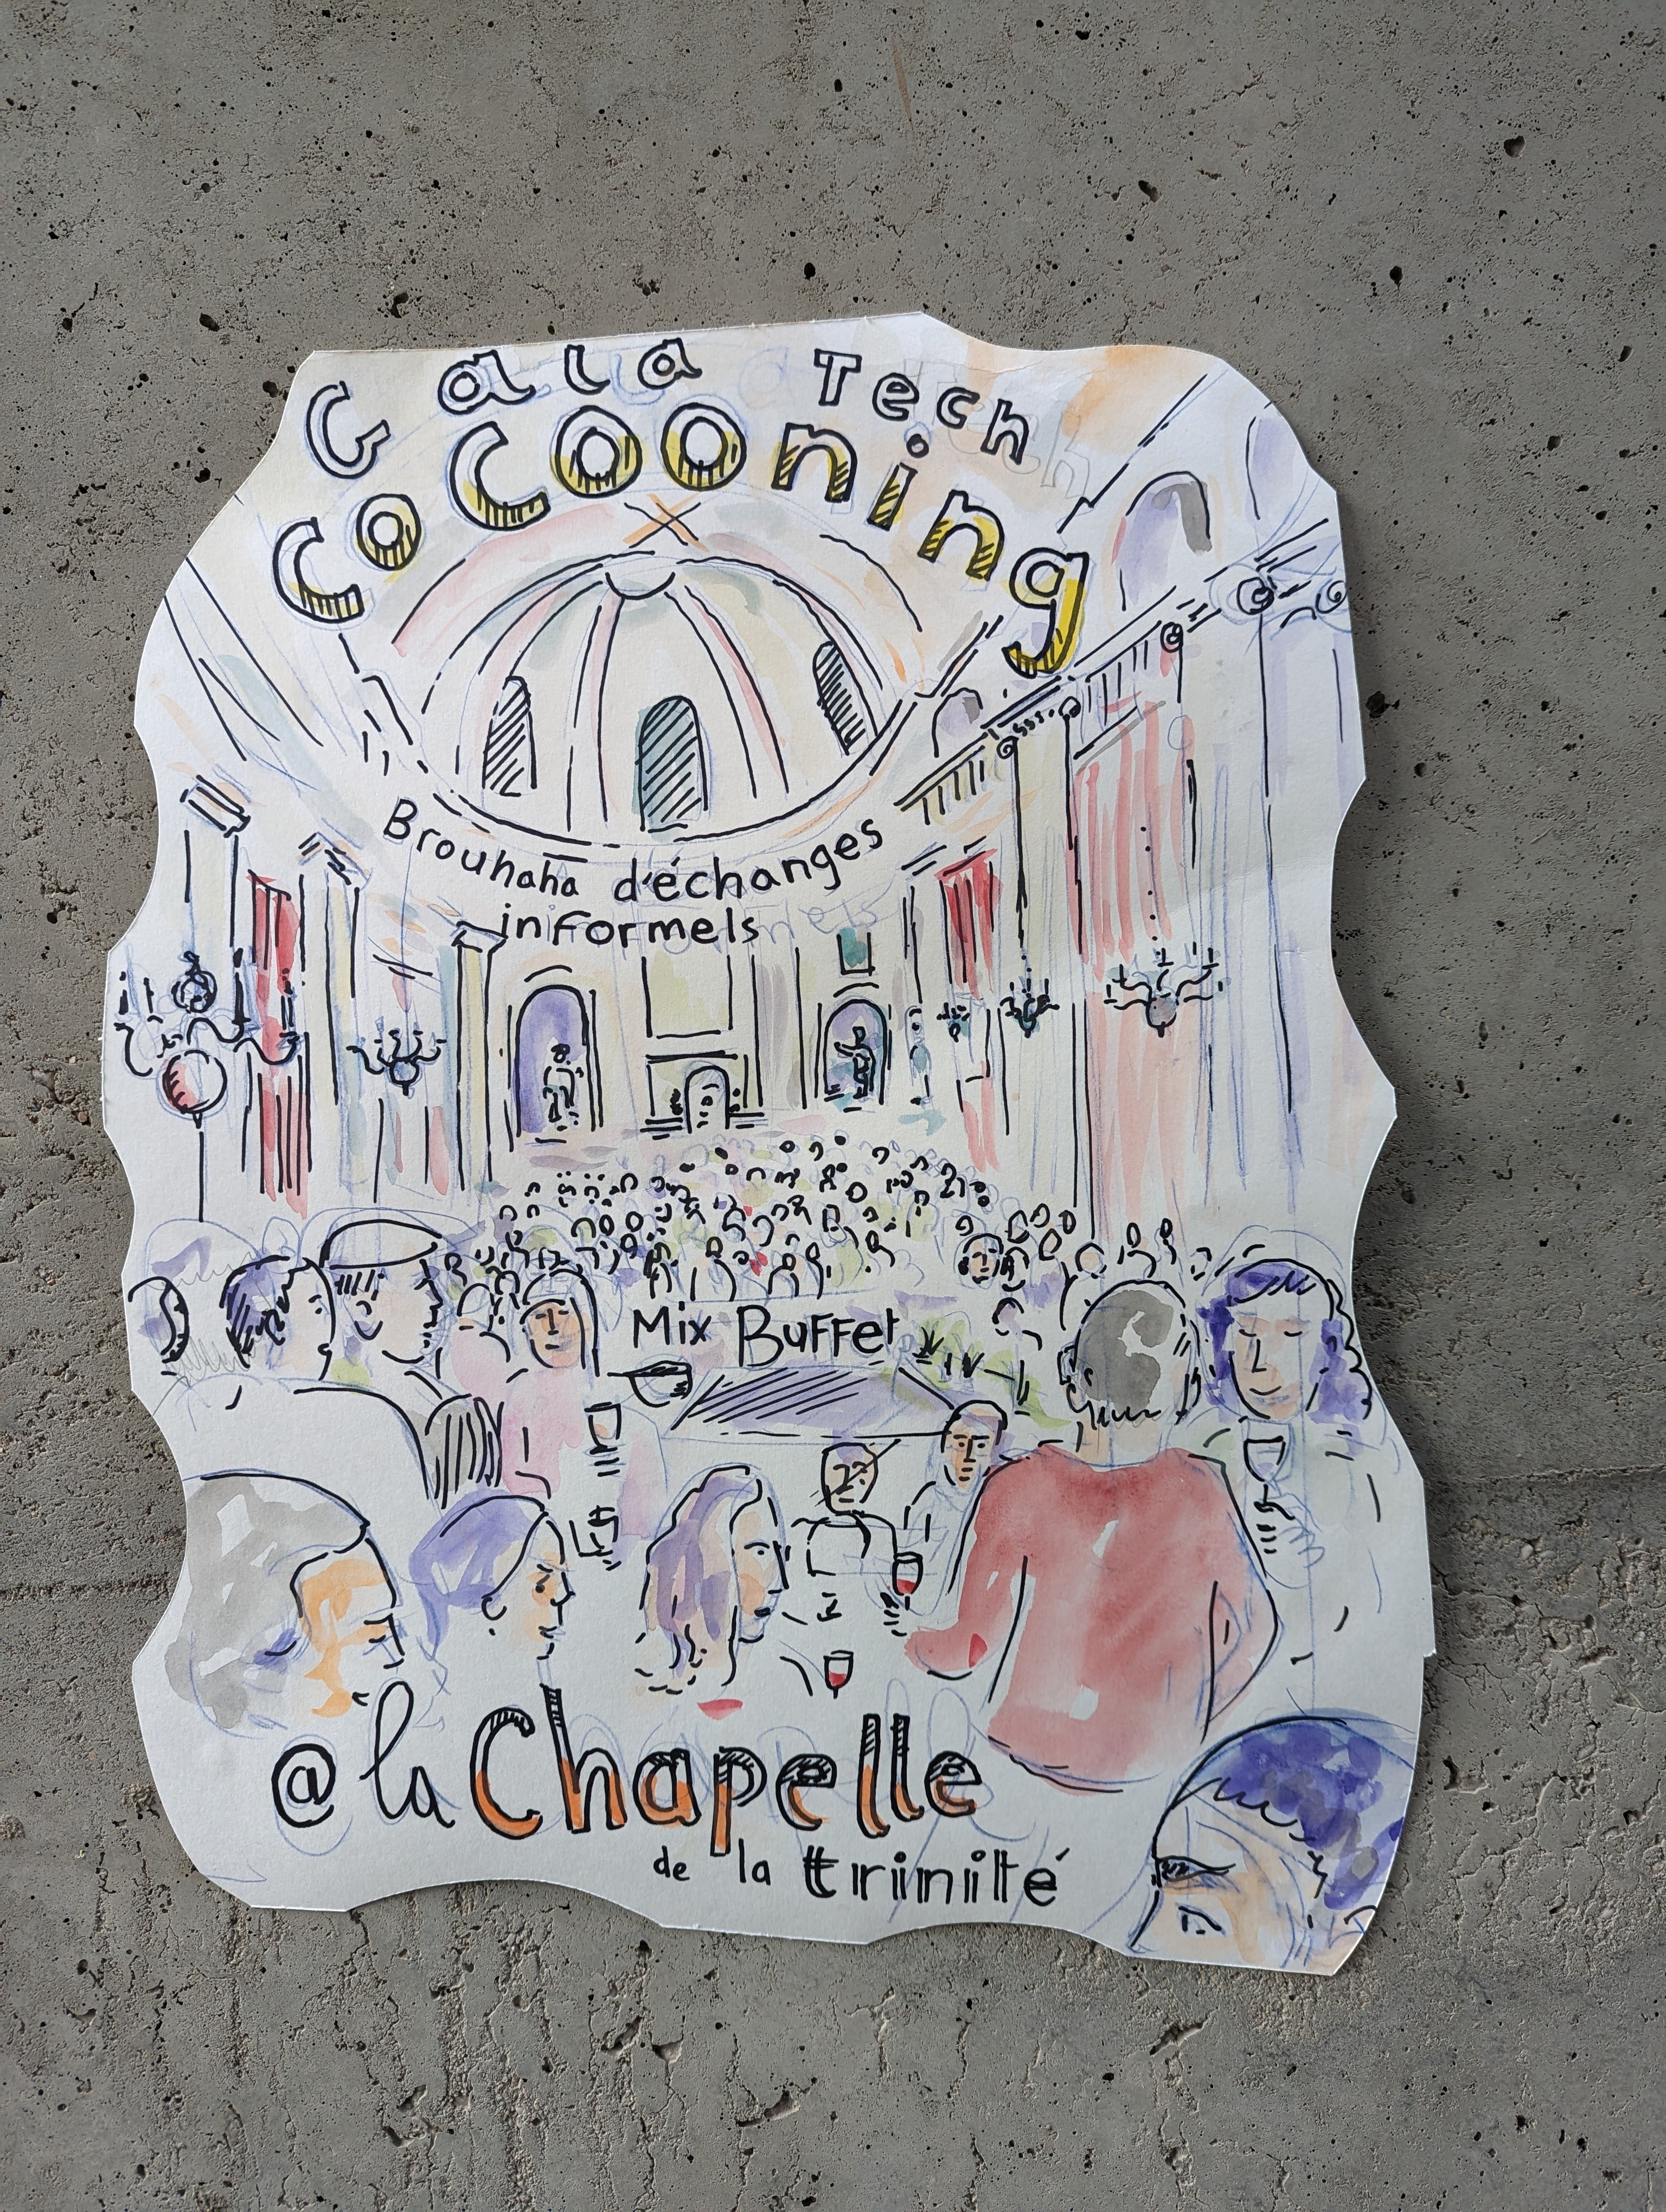 Gala Tech
Cocooning
Brouhaha d'échanges
informels
Mix Buffet
@ la Chapelle
de la trinité